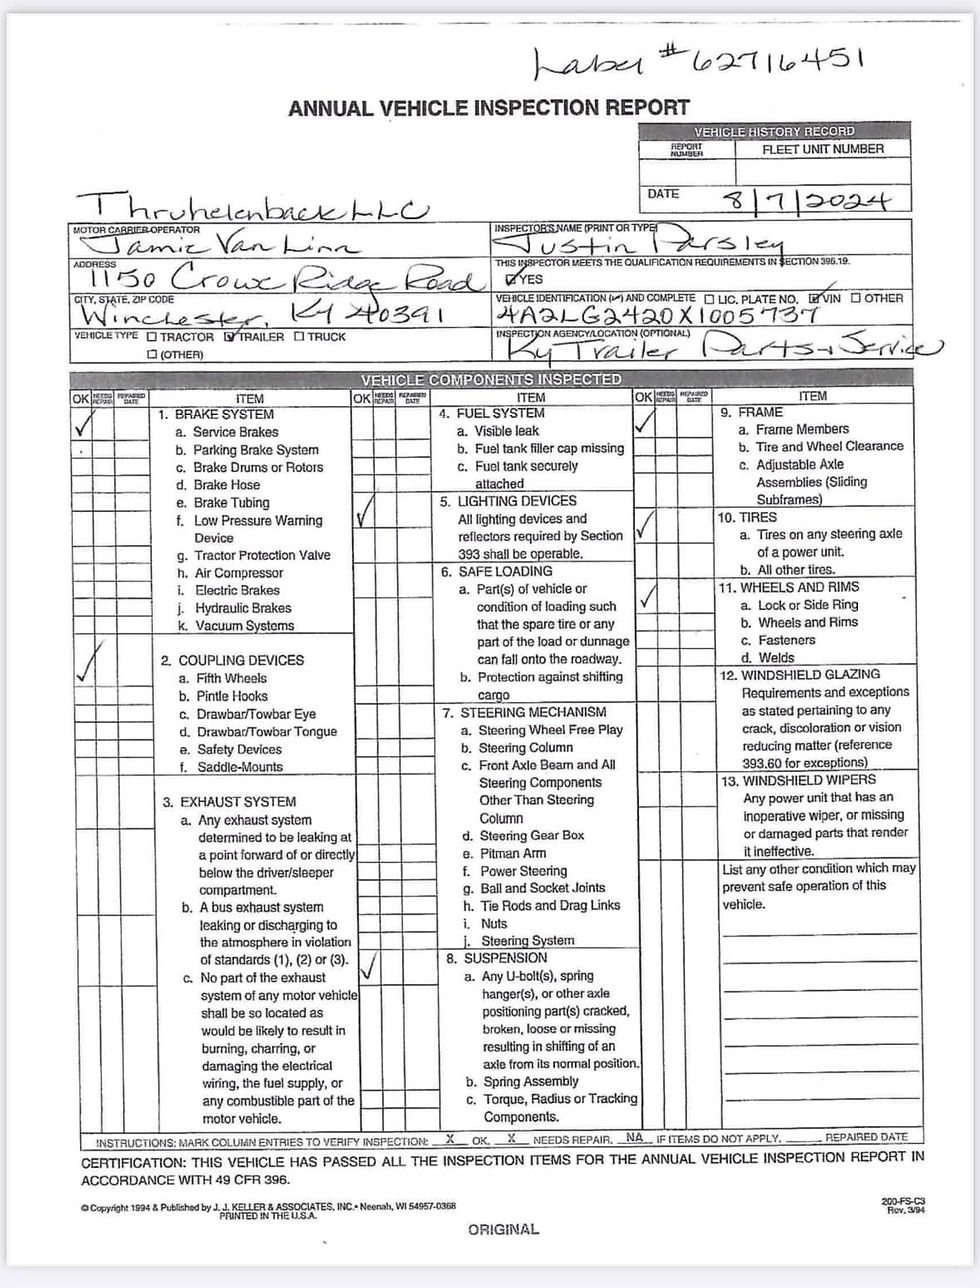 Label # 62716451
ANNUAL VEHICLE INSPECTION REPORT
VEHICLE HISTORY RECORD
REPORT NUMBER
FLEET UNIT NUMBER
DATE 8/7/2024
Thruhelenback LLC
MOTOR CARRIER OPERATOR
Jamie Van Linn
INSPECTOR'S NAME (PRINT OR TYPE)
Justin Parsley
ADDRESS
1150 Crowe Ridge Road
THIS INSPECTOR MEETS THE QUALIFICATION REQUIREMENTS IN SECTION 396.19.
YES
CITY, STATE, ZIP CODE
Winchester, KY 40391
VEHICLE IDENTIFICATION (✓) AND COMPLETE LIC. PLATE NO. VIN OTHER
4A2LG2420X1005737
VEHICLE TYPE TRACTOR TRAILER TRUCK
(OTHER)
INSPECTION AGENCY/LOCATION (OPTIONAL)
Ky Trailer Parts + Service
VEHICLE COMPONENTS INSPECTED
OK NEEDS REPAIR REPAIRED DATE ITEM
1. BRAKE SYSTEM
a. Service Brakes
b. Parking Brake System
c. Brake Drums or Rotors
d. Brake Hose
e. Brake Tubing
f. Low Pressure Warning
Device
g. Tractor Protection Valve
h. Air Compressor
i. Electric Brakes
j. Hydraulic Brakes
k. Vacuum Systems
2. COUPLING DEVICES
a. Fifth Wheels
b. Pintle Hooks
c. Drawbar/Towbar Eye
d. Drawbar/Towbar Tongue
e. Safety Devices
f. Saddle-Mounts
3. EXHAUST SYSTEM
a. Any exhaust system
determined to be leaking at
a point forward of or directly
below the driver/sleeper
compartment.
b. A bus exhaust system
leaking or discharging to
the atmosphere in violation
of standards (1), (2) or (3).
c. No part of the exhaust
system of any motor vehicle
shall be so located as
would be likely to result in
burning, charring, or
damaging the electrical
wiring, the fuel supply, or
any combustible part of the
motor vehicle.
OK NEEDS REPAIR REPAIRED DATE ITEM
4. FUEL SYSTEM
a. Visible leak
b. Fuel tank filler cap missing
c. Fuel tank securely
attached
5. LIGHTING DEVICES
All lighting devices and
reflectors required by Section
393 shall be operable.
6. SAFE LOADING
a. Part(s) of vehicle or
condition of loading such
that the spare tire or any
part of the load or dunnage
can fall onto the roadway.
b. Protection against shifting
cargo
7. STEERING MECHANISM
a. Steering Wheel Free Play
b. Steering Column
c. Front Axle Beam and All
Steering Components
Other Than Steering
Column
d. Steering Gear Box
e. Pitman Arm
f. Power Steering
g. Ball and Socket Joints
h. Tie Rods and Drag Links
i. Nuts
j. Steering System
8. SUSPENSION
a. Any U-bolt(s), spring
hanger(s), or other axle
positioning part(s) cracked,
broken, loose or missing
resulting in shifting of an
axle from its normal position.
b. Spring Assembly
c. Torque, Radius or Tracking
Components.
OK NEEDS REPAIR REPAIRED DATE ITEM
9. FRAME
a. Frame Members
b. Tire and Wheel Clearance
c. Adjustable Axle
Assemblies (Sliding
Subframes)
10. TIRES
a. Tires on any steering axle
of a power unit.
b. All other tires.
11. WHEELS AND RIMS
a. Lock or Side Ring
b. Wheels and Rims
c. Fasteners
d. Welds
12. WINDSHIELD GLAZING
Requirements and exceptions
as stated pertaining to any
crack, discoloration or vision
reducing matter (reference
393.60 for exceptions)
13. WINDSHIELD WIPERS
Any power unit that has an
inoperative wiper, or missing
or damaged parts that render
it ineffective.
List any other condition which may
prevent safe operation of this
vehicle.
INSTRUCTIONS: MARK COLUMN ENTRIES TO VERIFY INSPECTION: X OK, X NEEDS REPAIR, NA IF ITEMS DO NOT APPLY, REPAIRED DATE
CERTIFICATION: THIS VEHICLE HAS PASSED ALL THE INSPECTION ITEMS FOR THE ANNUAL VEHICLE INSPECTION REPORT IN
ACCORDANCE WITH 49 CFR 396.
© Copyright 1994 & Published by J. J. KELLER & ASSOCIATES, INC. • Neenah, WI 54957-0368
PRINTED IN THE U.S.A.
200-FS-C3
Rev. 3/94
ORIGINAL